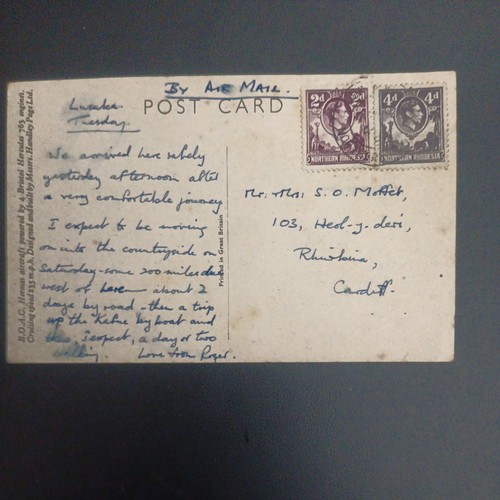 BY AIR MAIL.
POST CARD
Lusaka
Tuesday.
We arrived here safely
yesterday afternoon after
a very comfortable journey
I expect to be moving
on into the countryside on
Saturday - some 200 miles due
west of here - about 2
days by road - then a trip
up the Kafue by boat and
I expect, a day or two
Love from Roger.
Mr. Mrs. S. O. Moffet,
103, Heol-y-deri,
Rhiwbina,
Cardiff.
2d 2d
NORTHERN RHODESIA
4d 4d
NORTHERN RHODESIA
Printed in Great Britain
B.O.A.C. Hermes aircraft powered by 4 Bristol Hercules 763 engines.
Cruising speed 255 m.p.h. Designed and built by Messrs. Handley Page Ltd.